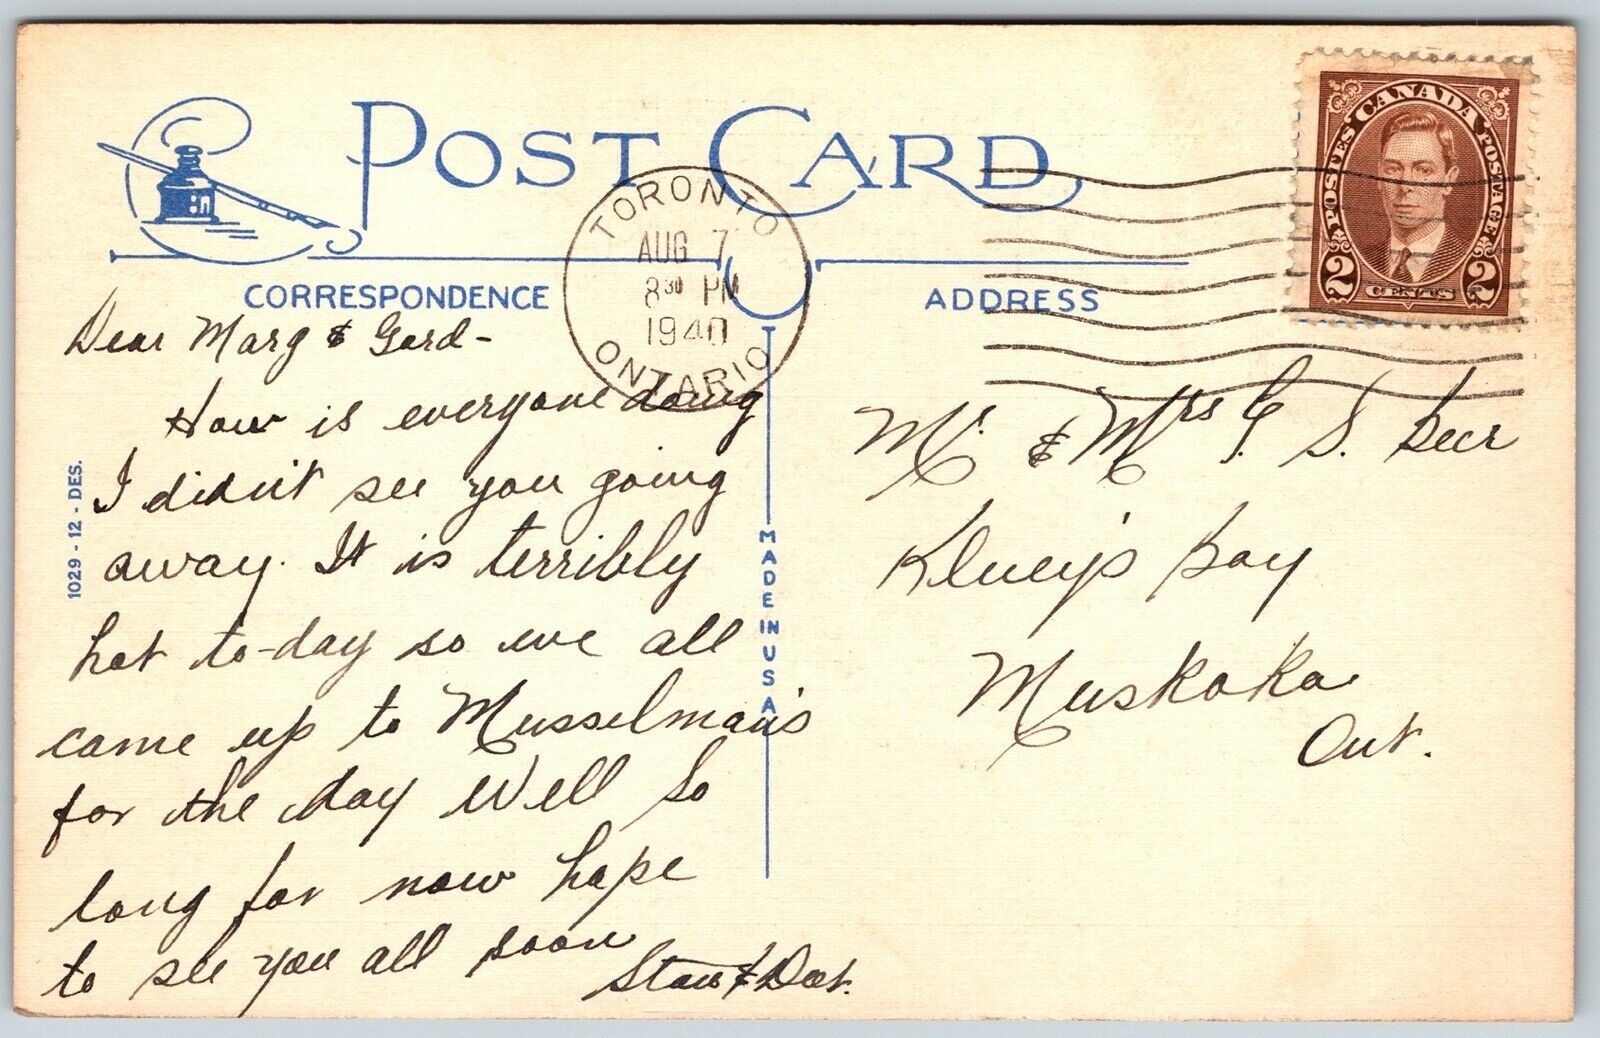 POST CARD
CANADA
POSTES POSTAGE
2 CENTS 2
TORONTO
AUG 7
8 30 PM
1940
ONTARIO
CORRESPONDENCE
ADDRESS
Dear Marg & Gord-
How is everyone doing
I didn't see you going
away. It is terribly
hot to-day so we all
came up to Musselman's
for the day Well so
long for now hope
to see you all soon
Stan & Dot.
1029-12-DES.
MADE IN USA
Mr. & Mrs S.
Bay
Muskoka
Ont.